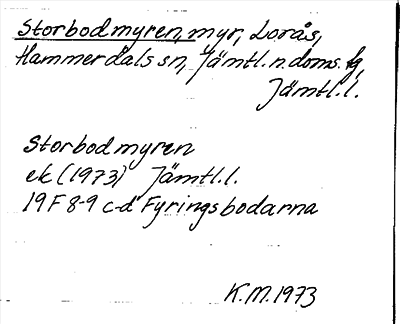 Storbodmyren, myr, Lorås,
Hammerdals sn, Jämtl. n. doms. fg,
Jämtl. l.
Storbodmyren
ek (1973) Jämtl. l.
19 F 8-9 c-d Fyringsbodarna
K.M. 1973